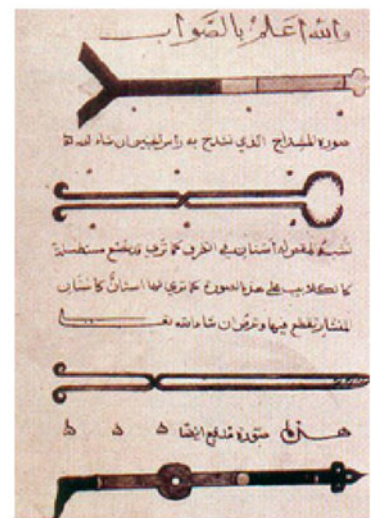 والله اعلم بالصواب
صورة المشداخ الذي تشدخ به راس الجنين ان شاء الله
اسنان في الطرف كما ترى وقد يصنع مستطيلة
كالكلاليب على هذه الصورة كما ترى لها اسنان كاسنان
المنشار يقطع فيها وترض ان شاء الله
هذه صورة مدفع ايضا